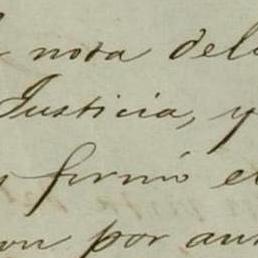 nota del
Justicia, y
firmó e
por au